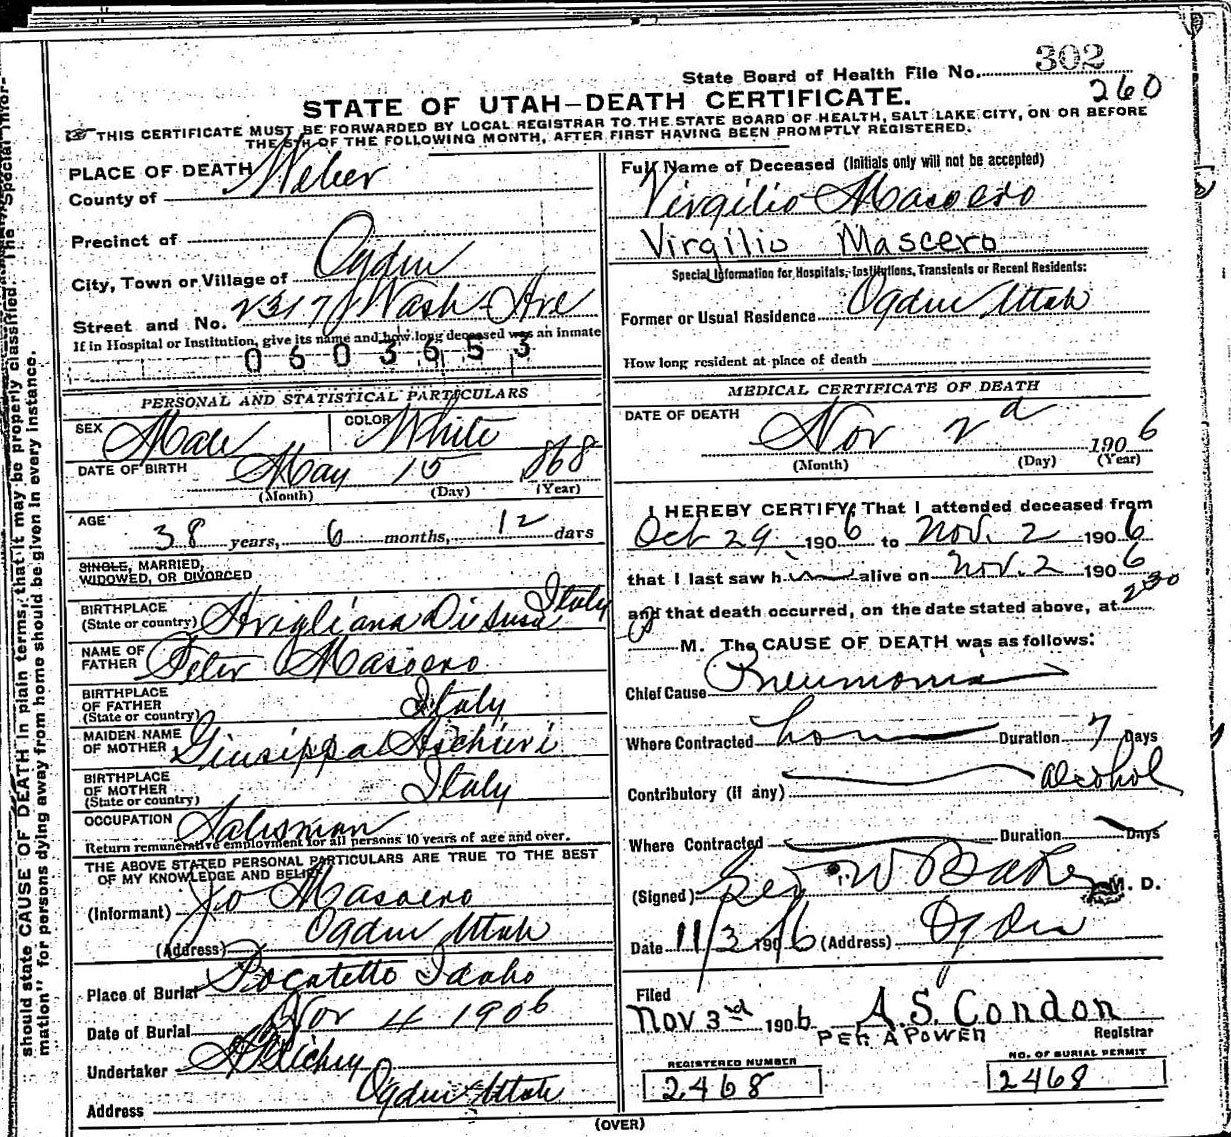 302
State Board of Health File No.
260
STATE OF UTAH—DEATH CERTIFICATE.
THIS CERTIFICATE MUST BE FORWARDED BY LOCAL REGISTRAR TO THE STATE BOARD OF HEALTH, SALT LAKE CITY, ON OR BEFORE
THE 5TH OF THE FOLLOWING MONTH, AFTER FIRST HAVING BEEN PROMPTLY REGISTERED.
PLACE OF DEATH
County of Weber
Precinct of
City, Town or Village of Ogden
Street and No. 2317½ Wash Ave
If in Hospital or Institution, give its name and how long deceased was an inmate
0603653
PERSONAL AND STATISTICAL PARTICULARS
SEX Male COLOR White
DATE OF BIRTH May 15 1868
(Month) (Day) (Year)
AGE 38 years, 6 months, 12 days
SINGLE, MARRIED,
WIDOWED, OR DIVORCED
BIRTHPLACE
(State or country) Avigliana Italy
NAME OF
FATHER Peter Masoero
BIRTHPLACE
OF FATHER
(State or country) Italy
MAIDEN NAME
OF MOTHER Giusippa
BIRTHPLACE
OF MOTHER
(State or country) Italy
OCCUPATION Salisman
Return remunerative employment for all persons 10 years of age and over.
THE ABOVE STATED PERSONAL PARTICULARS ARE TRUE TO THE BEST
OF MY KNOWLEDGE AND BELIEF
(Informant) Jo Masoero
(Address) Ogden Utah
Place of Burial Pocatello Idaho
Date of Burial Nov 4 1906
Undertaker
Address Ogden Utah
Full Name of Deceased (Initials only will not be accepted)
Virgilio Masoero
Virgilio Mascero
Special Information for Hospitals, Institutions, Transients or Recent Residents:
Former or Usual Residence Ogden Utah
How long resident at place of death
MEDICAL CERTIFICATE OF DEATH
DATE OF DEATH Nov 2d 1906
(Month) (Day) (Year)
I HEREBY CERTIFY, That I attended deceased from
Oct 29, 1906 to Nov. 2 1906
that I last saw him alive on Nov. 2 1906
and that death occurred, on the date stated above, at 230
P M. The CAUSE OF DEATH was as follows:
Chief Cause Pneumonia
Where Contracted home Duration 7 Days
Contributory (if any) alcohol
Where Contracted Duration Days
(Signed) Geo W Baker M. D.
Date 11/3 1906 (Address) Ogden
Filed
Nov 3rd 1906 A.S. Condon
PER A POWEN Registrar
REGISTERED NUMBER
2468
NO. OF BURIAL PERMIT
2468
(OVER)
should state CAUSE OF DEATH in plain terms, that it may be properly classified. The "Special Infor-
mation" for persons dying away from home should be given in every instance.